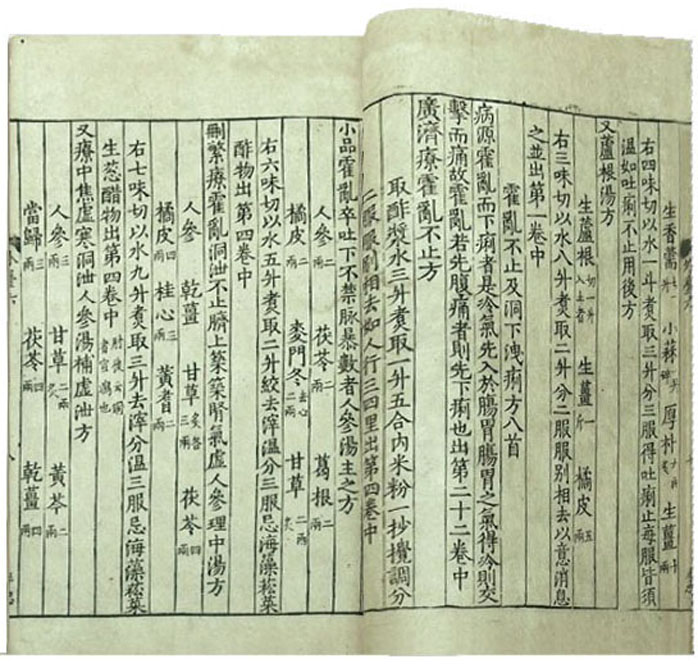 生香薷 小蒜 厚朴 生薑
右四味切以水一斗煮取三升分三服得吐痢止每服皆須
溫如吐痢不止用後方
又蘆根湯方
生蘆根切一升入土者 生薑一斤 橘皮五兩
右三味切以水八升煮取二升分二服服別相去以意消息
之並出第一卷中
霍亂不止及洞下洩痢方八首
病源霍亂而下痢者是冷氣先入於腸胃腸胃之氣得冷則交
擊而痛故霍亂若先腹痛者則先下痢也出第二十二卷中
廣濟療霍亂不止方
取酢漿水三升煮取一升五合內米粉一抄攪調分
二服服別相去如人行三四里出第四卷中
小品霍亂卒吐下不禁脉暴數者人參湯主之方
人參二兩 茯苓二兩 葛根二兩
橘皮二兩 麥門冬去心二兩 甘草二兩炙
右六味切以水五升煮取二升絞去滓溫分三服忌海藻菘菜
酢物出第四卷中
刪繁療霍亂洞泄不止臍上築築腎氣虛人參理中湯方
人參 乾薑 甘草炙各三兩 茯苓四兩
橘皮四兩 桂心三兩 黃耆二兩
右七味切以水九升煮取三升去滓分溫三服忌海藻菘菜
生葱醋物出第四卷中
又療中焦虛寒洞泄人參湯補虛泄方
人參三兩 甘草二兩炙 黃芩二兩
當歸三兩 茯苓四兩 乾薑四兩